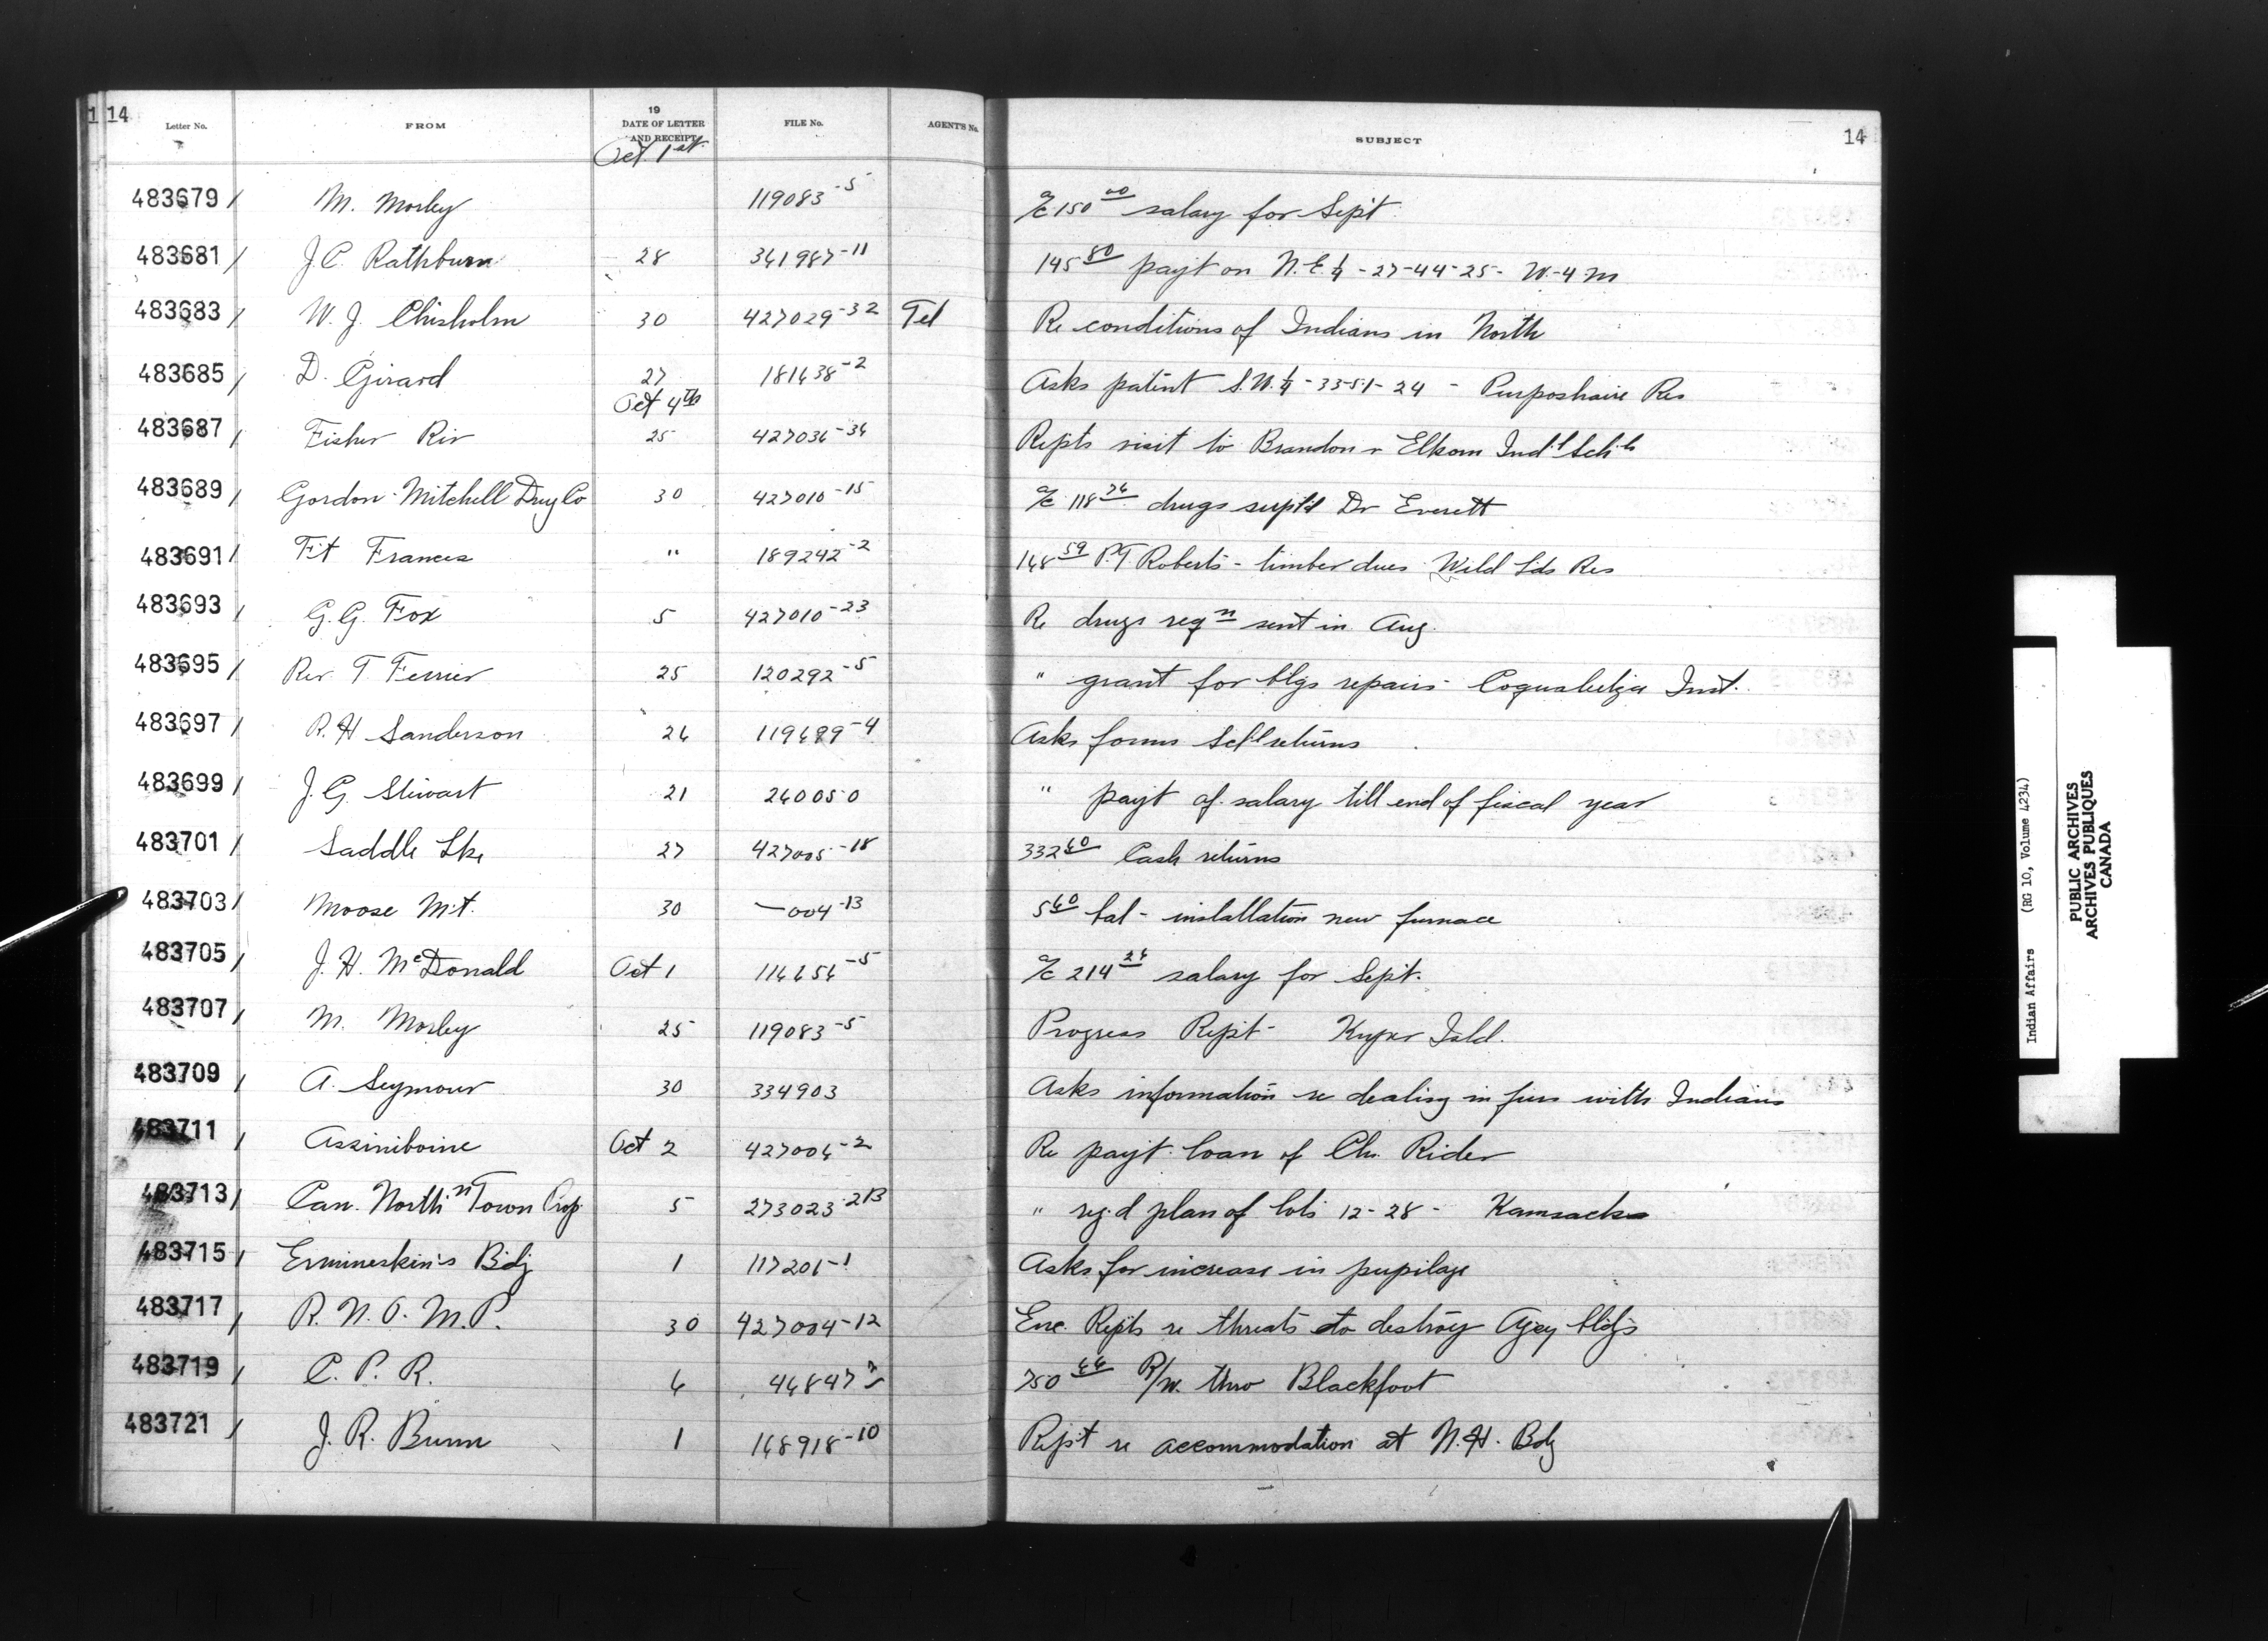 14 14
Letter No. FROM 19 DATE OF LETTER AND RECEIPT FILE No. AGENT'S No. SUBJECT
Oct. 1st
483679 / M. Morley 119083-5 a/c 150.00 salary for Sept
483681 / J.C. Rathburn 28 361987-11 145.80 payt on N.E. 1/4 - 27-44-25- W-4-M
483683 / W. J. Chisholm 30 427029-32 Tel Re conditions of Indians in North
483685 / D. Girard 27 181638-2 Asks patent S.W. 1/4 - 33-51-24 - Res
Oct 4th
483687 / Fisher Riv 25 427036-36 Repts visit to Brandon & Elkorn Ind'l Sch'ls
483689 / Gordon-Mitchell Drug Co 30 427010-15 a/c 118.76 drugs supl'd Dr Everett
483691 / Ft Frances " 189242-2 168.59 P.T Roberts - timber dues Wild Lds Res
483693 / G.G. Fox 5 427010-23 Re drugs reqn sent in Aug.
483695 / Rev. T Ferrier 25 120292-5 " grant for blgs repairs - Coqualeetza Inst.
483697 / R.H Sanderson 26 119699-4 Asks forms Sch'l returns
483699 / J.G. Stewart 21 260050 " payt of salary till end of fiscal year
483701 / Saddle Lke 27 427005-18 332.60 Cash returns
483703 / Moose Mt. 30 —004-13 5.60 bal - installation new furnace
483705 / J. H. McDonald Oct 1 116656-5 a/c 214.26 salary for Sept.
483707 / M. Morley 25 119083-5 Progress Rept - Kuper Isld.
483709 / A. Seymour 30 334903 Asks information re dealing in furs with Indians
483711 / Assiniboine Oct 2 427006-2 Re payt loan of Ch. Rider
483713 / Can. North'n Town Prop. 5 273023-2B " reg'd plan of lots 12-28 - Kamsack
483715 / Ermineskin's Bdg 1 117201-1 Asks for increase in pupilage
483717 / R.N.O.M.P. 30 427004-12 Enc. Repts re threats to destroy Agcy bldgs
483719 / C. P. R. 6 46847 750.66 R/W. thro Blackfoot
483721 / J. R. Bunn 1 168918-10 Rept re accommodation at N.H. Bdg
Indian Affairs (RG 10, Volume 4234)
PUBLIC ARCHIVES
ARCHIVES PUBLIQUES
CANADA